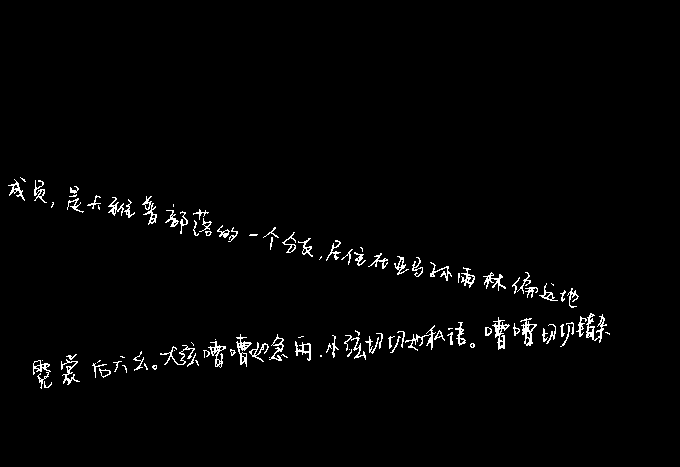 成员,是卡雅普部落的一个分支,居住在亚马孙雨林偏远地
霓裳后六幺。大弦嘈嘈如急雨,小弦切切如私语。嘈嘈切切错杂